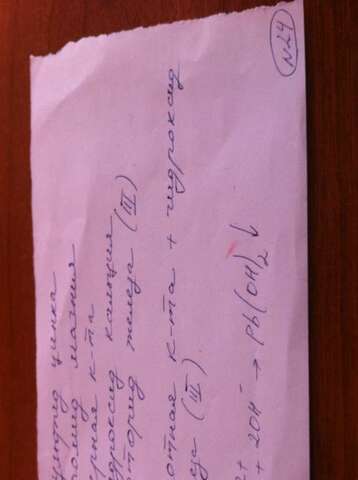 №24
цинка
омид магния
рная к-та
дроксид кальция
торид железа (III)
отная к-та + гидроксид
еза (II).
2+ + 2OH⁻ → Pb(OH)₂↓